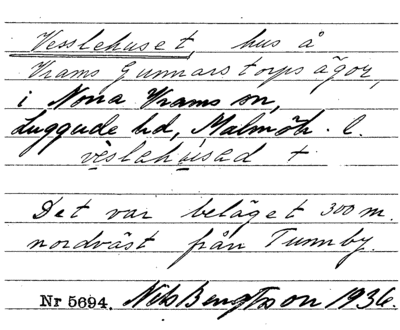 Vesslehuset, hus å
Vrams Gunnarstorps ägor,
i Norra Vrams sn,
Luggude hd, Malmöh. l.
vèslehúsed +
Det var beläget 300 m.
nordväst från Tunnby.
Nr 5694. Nils Bengtsson 1936.